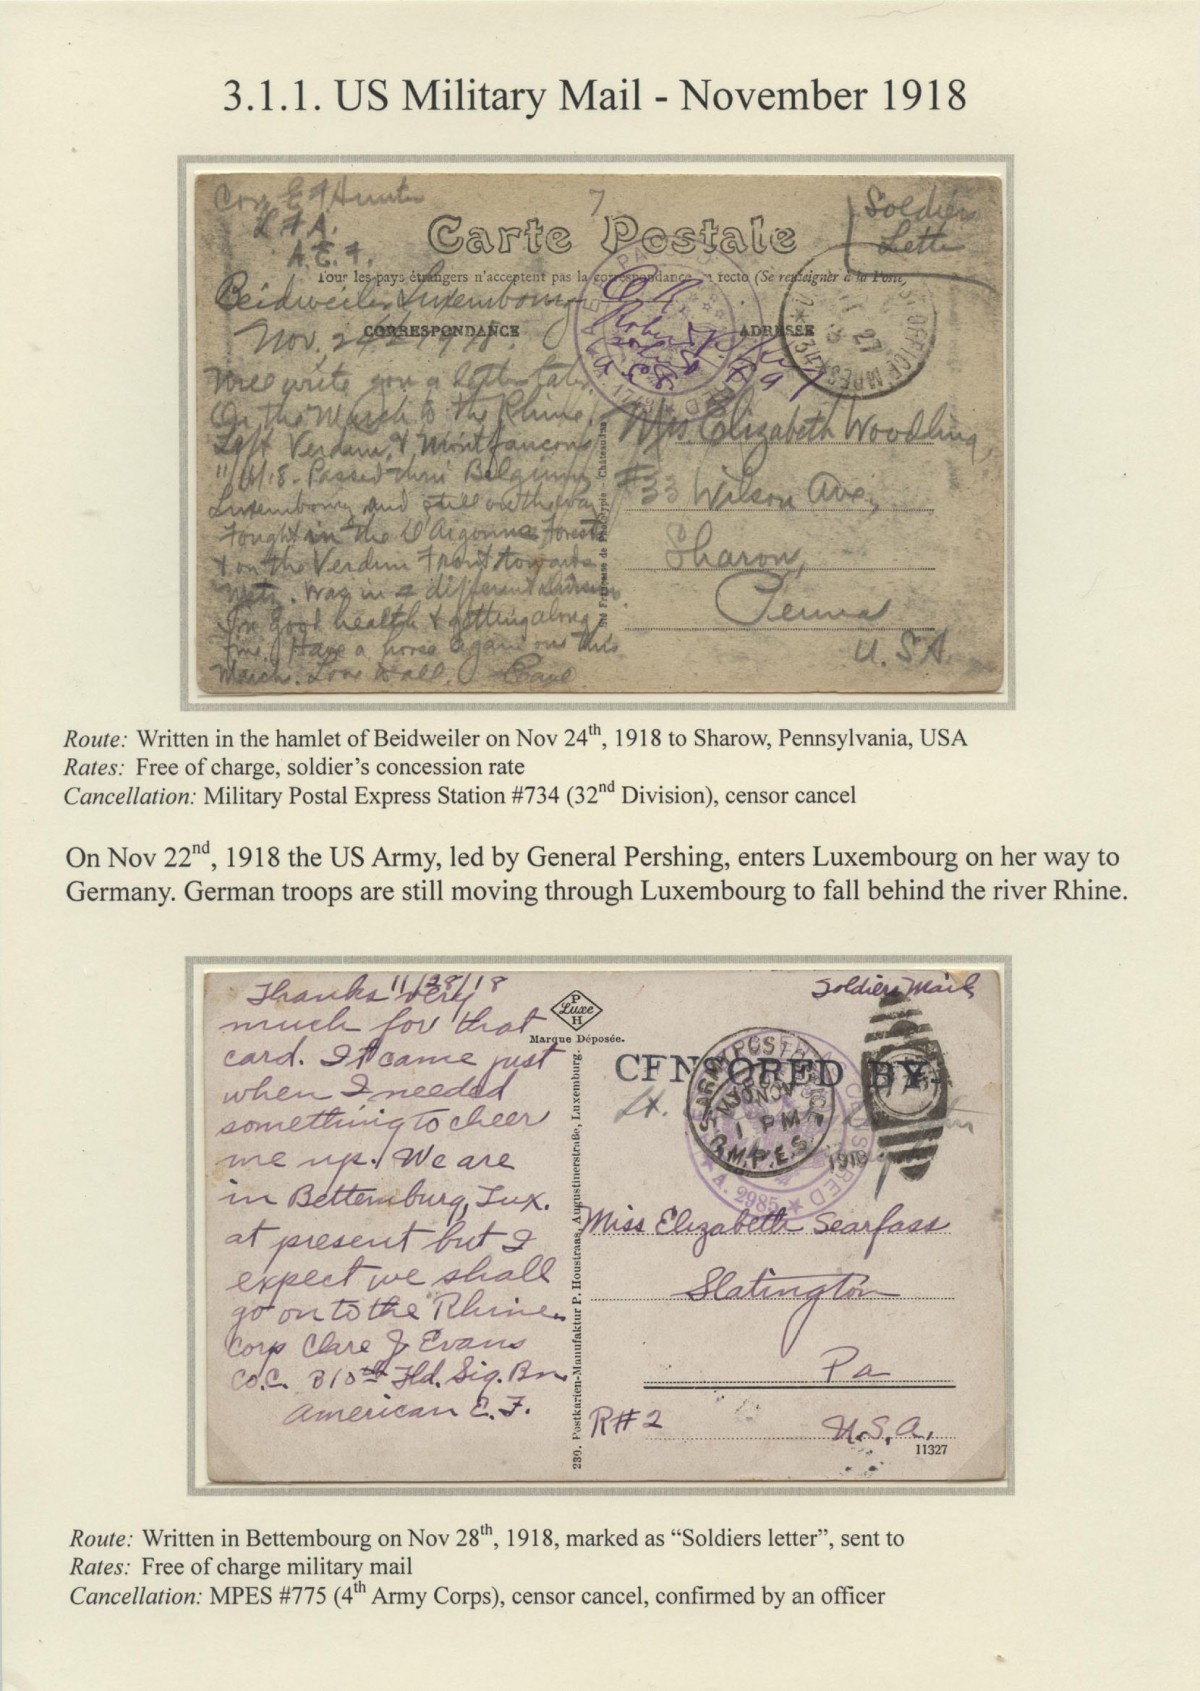 3.1.1. US Military Mail - November 1918
Corp E F Hunter
F. A.
A. E. F.
7
Carte Postale
Soldiers
Letter
Tous les pays étrangers n'acceptent pas la correspondance au recto (Se renseigner à la Poste)
Beidweiler Luxembourg
CORRESPONDANCE
ADRESSE
Nov. 24 1918.
O.K.
Will write you a letter later.
On the March to the Rhine.
Left Verdun & Montfaucon
11/ /18. Passed thru Belgium
Luxembourg and still on the way
Fought in the Argonne Forest
& on the Verdun Front towards
Metz. Was in different
In good health & getting along
fine. Have a horse again on this
March. Love to all. Earl
PASSED
CENSORED
27
734
Mrs. Elizabeth Woodling,
#33 Wilson Ave,
Sharon,
Penna
U. S. A.
Française de Phototypie - Châteaudun
Route: Written in the hamlet of Beidweiler on Nov 24th, 1918 to Sharow, Pennsylvania, USA
Rates: Free of charge, soldier's concession rate
Cancellation: Military Postal Express Station #734 (32nd Division), censor cancel
On Nov 22nd, 1918 the US Army, led by General Pershing, enters Luxembourg on her way to
Germany. German troops are still moving through Luxembourg to fall behind the river Rhine.
11/28/18
Thanks very
much for that
card. It came just
when I needed
something to cheer
me up. We are
in Bettemburg, Lux.
at present but I
expect we shall
go on to the Rhine.
Corp Clare J Evans
Co.C. 310th Fld. Sig. Bn.
American E. F.
P
Luxe
H
Marque Déposée.
239. Postkarien-Manufaktur P. Houstraas, Augustinerstraße, Luxemburg.
Soldiers Mail
CENSORED BY
Lt.
U.S. ARMY POST
30 NOV
1 PM
M.P.E.S.
1918
A. 2985
Miss Elizabeth Searfass
Slatington
Pa
R#2
U.S.A.
11327
Route: Written in Bettembourg on Nov 28th, 1918, marked as “Soldiers letter”, sent to
Rates: Free of charge military mail
Cancellation: MPES #775 (4th Army Corps), censor cancel, confirmed by an officer